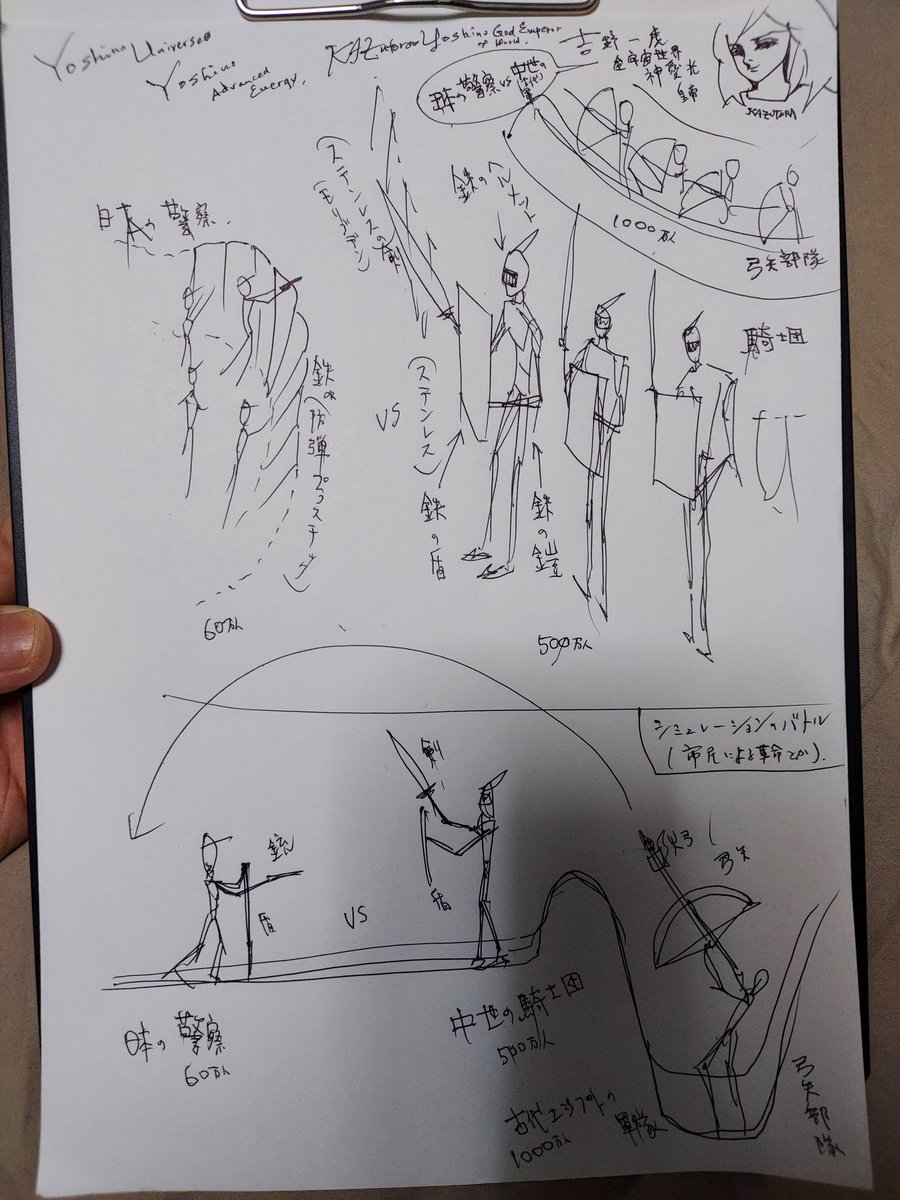 Yoshino Universe
Yoshino
Advanced
Energy.
KAZutora Yoshino God Emperor
of World.
吉野一虎
全宇宙世界
神聖光
皇帝
KAZUTORA
日本の警察 vs 中世の
軍
日本の警察
鉄のヘルメット
1000万人
弓矢部隊
騎士団
(ステンレスの剣
(モリブデン)
鉄or
(防弾プラスチック)
VS
(ステンレス)
鉄の盾
鉄の鎧
60万人
500万人
シミュレーションのバトル
(市民による革命とか).
剣
銃
盾
盾
VS
火弓
弓矢
日本の警察
60万人
中世の騎士団
500万人
古代エジプトの
軍隊
1000万人
弓矢部隊